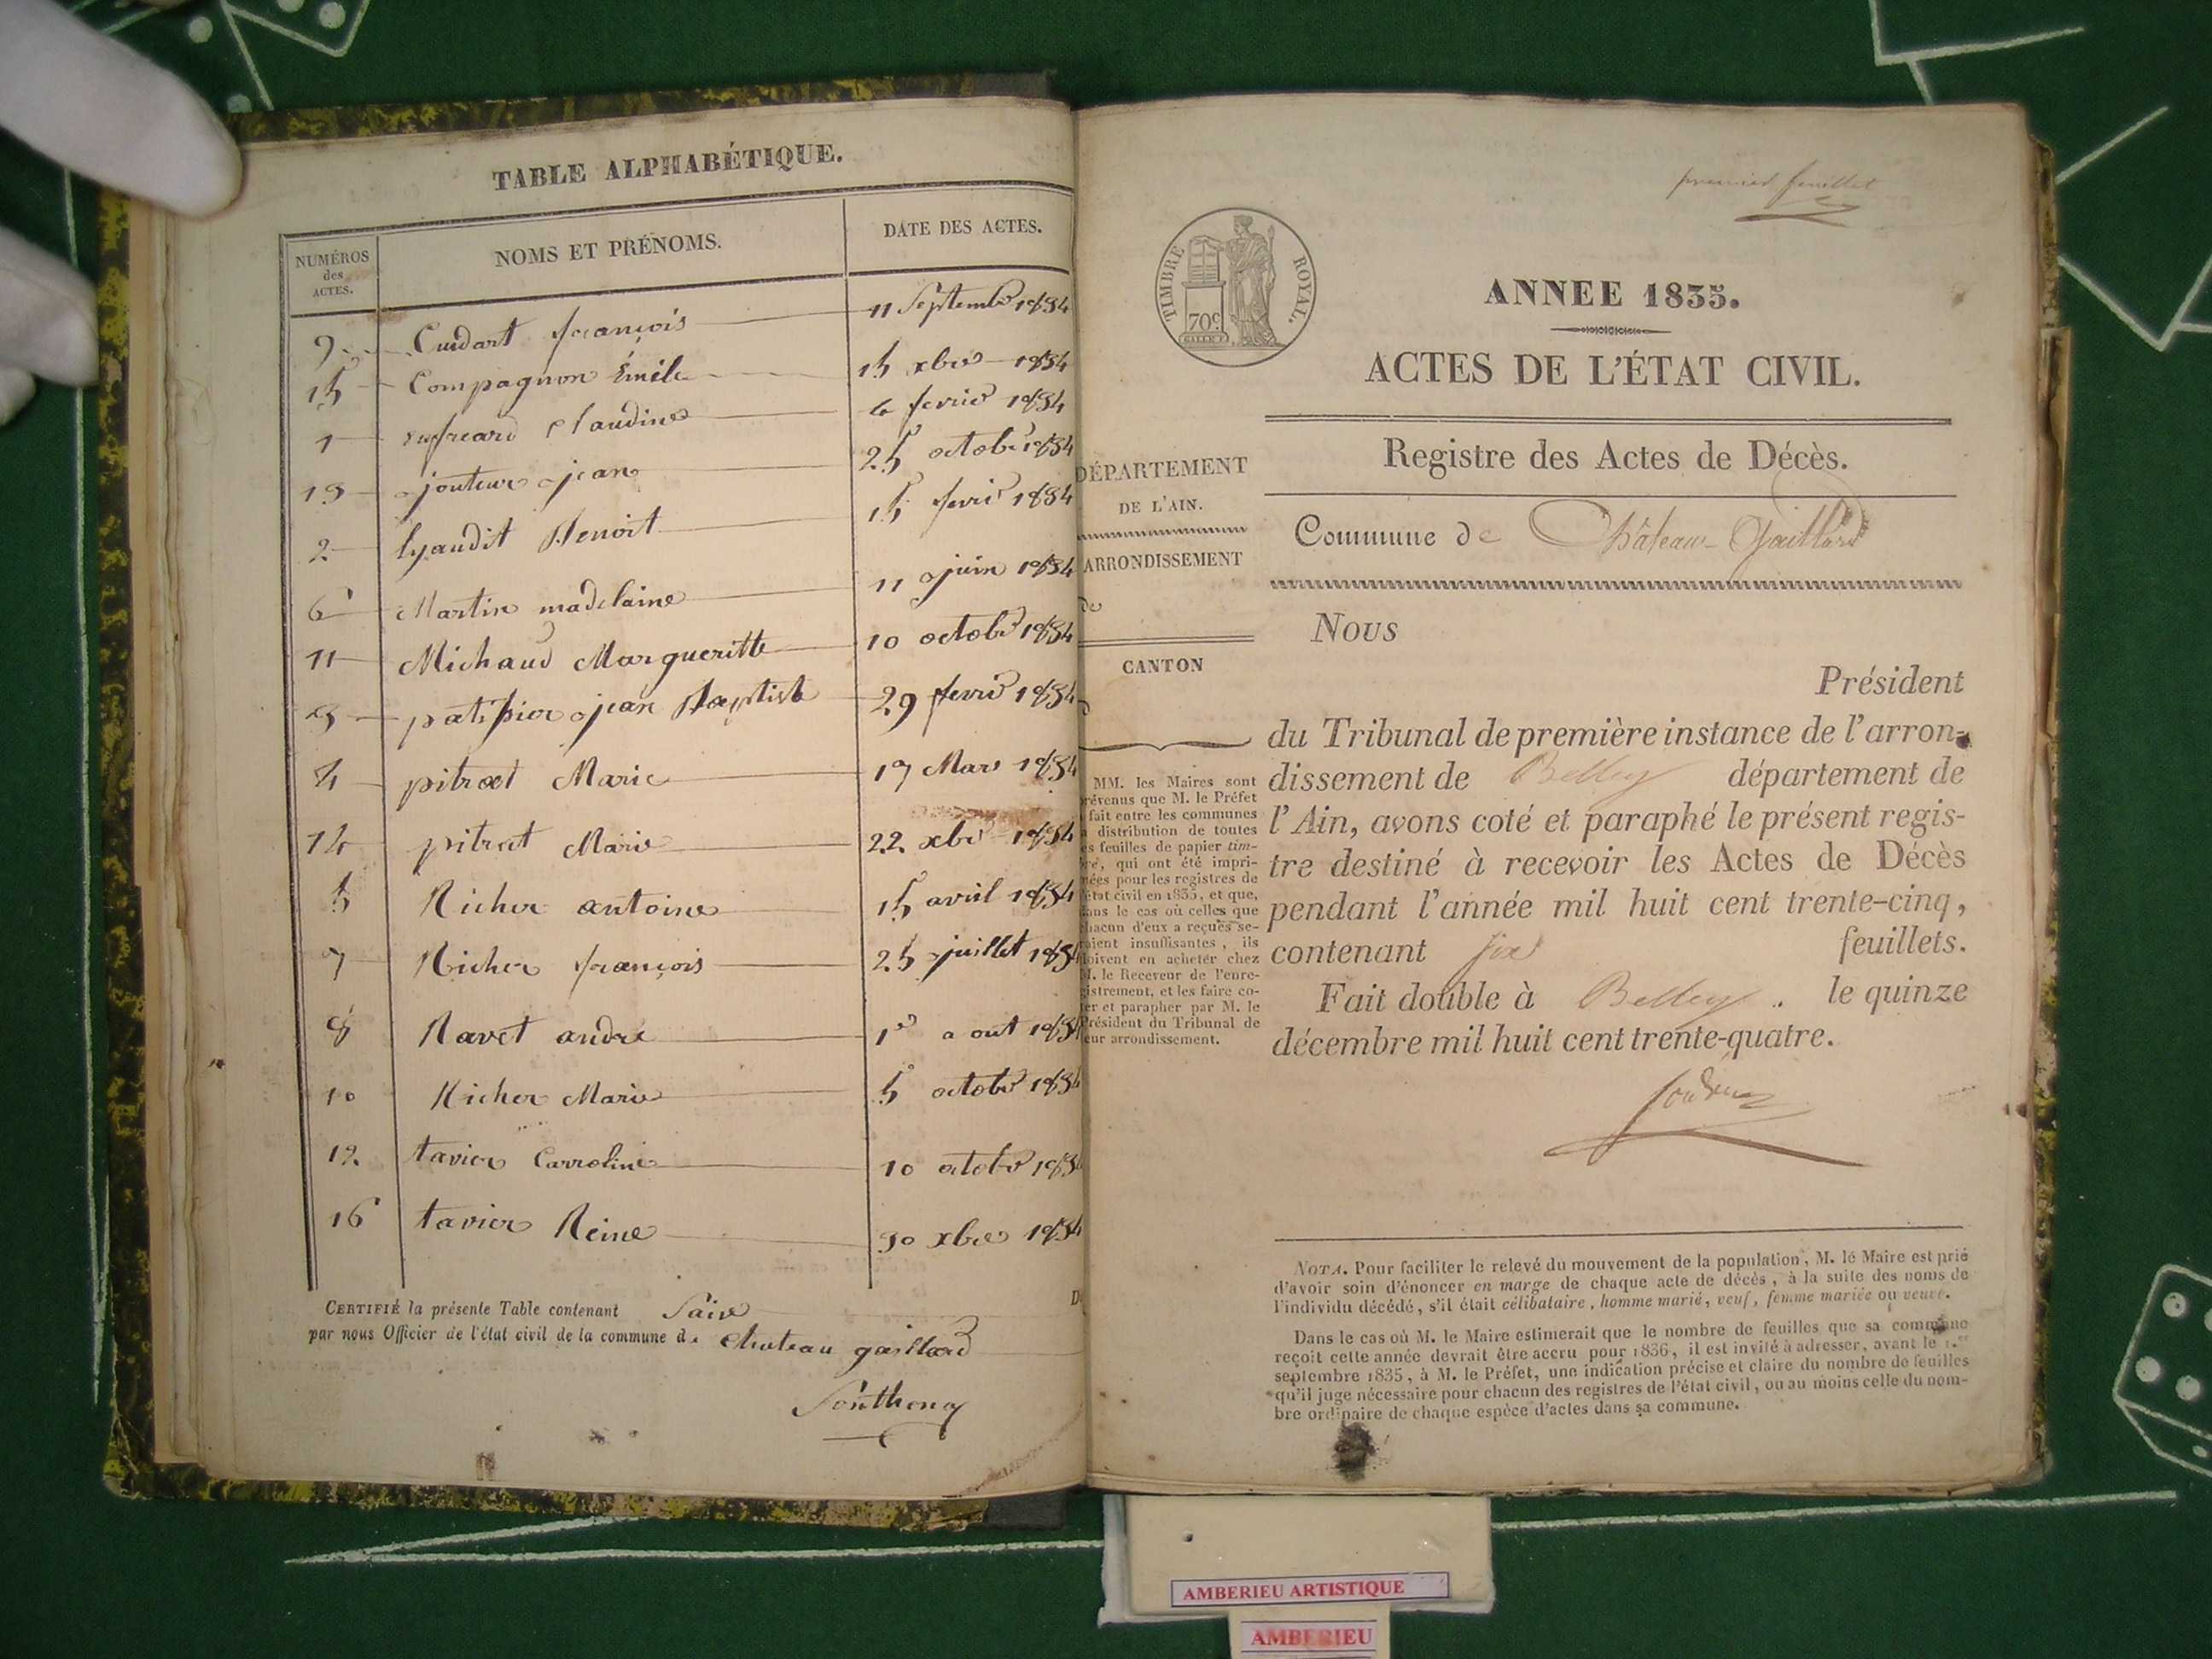 TABLE ALPHABÉTIQUE.
NUMÉROS des ACTES. NOMS ET PRÉNOMS. DATE DES ACTES.
9 Cuidart françois 11 Septembre 1834
15 Compagnon Émile 15 xbre 1834
1 Claudine 6 fevrier 1834
13 jouteur jean 25 octobre 1834
2 lyaudit Benoit 15 fevrier 1834
6 Martin madelaine 11 juin 1834
11 Michaud Margueritte 10 octobre 1834
3 patissier jean Baptiste 29 fevrier 1834
4 pitrat Marie 17 Mars 1834
14 pitrat Marie 22 xbre 1834
5 Richer antoine 15 avril 1834
7 Richer françois 25 juillet 1834
8 Ravet andré 1er aout 1834
10 Richer Marie 5 octobre 1834
12 tavier Carroline 10 octobre 1834
16 tavier Reine 30 xbre 1834
CERTIFIÉ la présente Table contenant
par nous Officier de l'état civil de la commune de Chateau gaillard
premier feuillet
TIMBRE ROYAL.
70c
ANNEE 1835.
ACTES DE L'ÉTAT CIVIL.
Registre des Actes de Décès.
Commune de Château-Gaillard
DÉPARTEMENT
DE L'AIN.
ARRONDISSEMENT
de
CANTON
MM. les Maires sont
prévenus que M. le Préfet
fait entre les communes
la distribution de toutes
les feuilles de papier tim-
bré, qui ont été impri-
mées pour les registres de
l'état civil en 1835, et que,
dans le cas où celles que
chacun d'eux a reçues se-
raient insuffisantes, ils
doivent en acheter chez
M. le Receveur de l'enre-
gistrement, et les faire co-
ter et parapher par M. le
Président du Tribunal de
leur arrondissement.
Nous
Président
du Tribunal de première instance de l'arron-
dissement de Belley département de
l'Ain, avons coté et paraphé le présent regis-
tre destiné à recevoir les Actes de Décès
pendant l'année mil huit cent trente-cinq,
contenant six feuillets.
Fait double à Belley. le quinze
décembre mil huit cent trente-quatre.
NOTA. Pour faciliter le relevé du mouvement de la population, M. le Maire est prié
d'avoir soin d'énoncer en marge de chaque acte de décès, à la suite des noms de
l'individu décédé, s'il était célibataire, homme marié, veuf, femme mariée ou veuve.
Dans le cas où M. le Maire estimerait que le nombre de feuilles que sa commune
reçoit cette année devrait être accru pour 1836, il est invité à adresser, avant le 1.er
septembre 1835, à M. le Préfet, une indication précise et claire du nombre de feuilles
qu'il juge nécessaire pour chacun des registres de l'état civil, ou au moins celle du nom-
bre ordinaire de chaque espèce d'actes dans sa commune.
AMBERIEU ARTISTIQUE
AMBERIEU